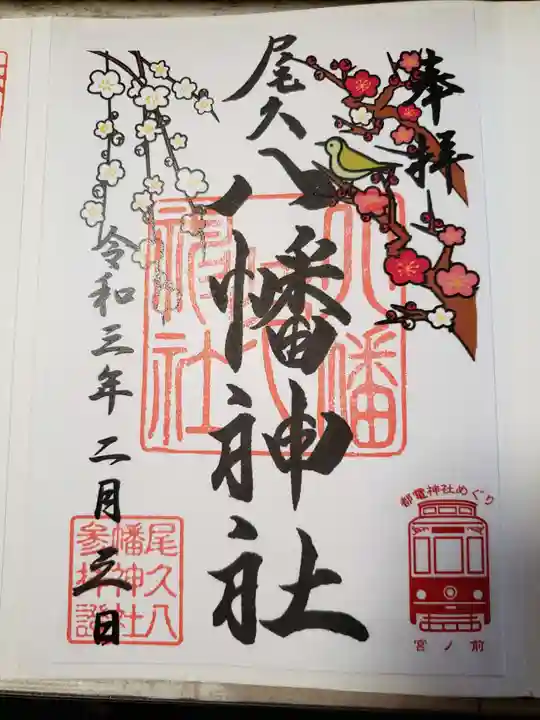 奉拝
尾久
八幡神社
令和三年二月立日
八幡
神社
尾久八
幡神社
参拝證
都電神社めぐり
宮ノ前